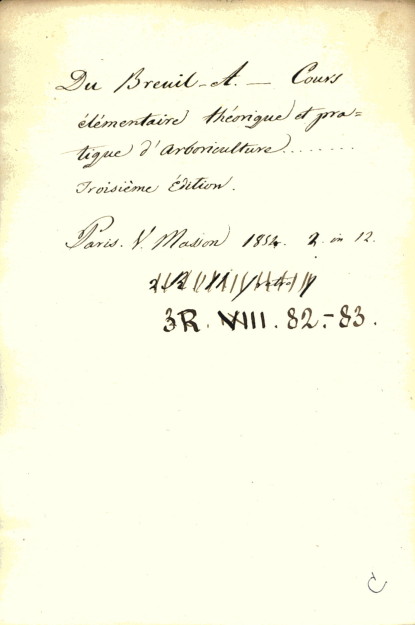 Du Breuil-A. — Cours
élémentaire théorique et pra=
tique d'Arboriculture........
Troisième Édition.
Paris. V. Masson 1854. 2. in 12.
3R. VIII. 82.-83.
C